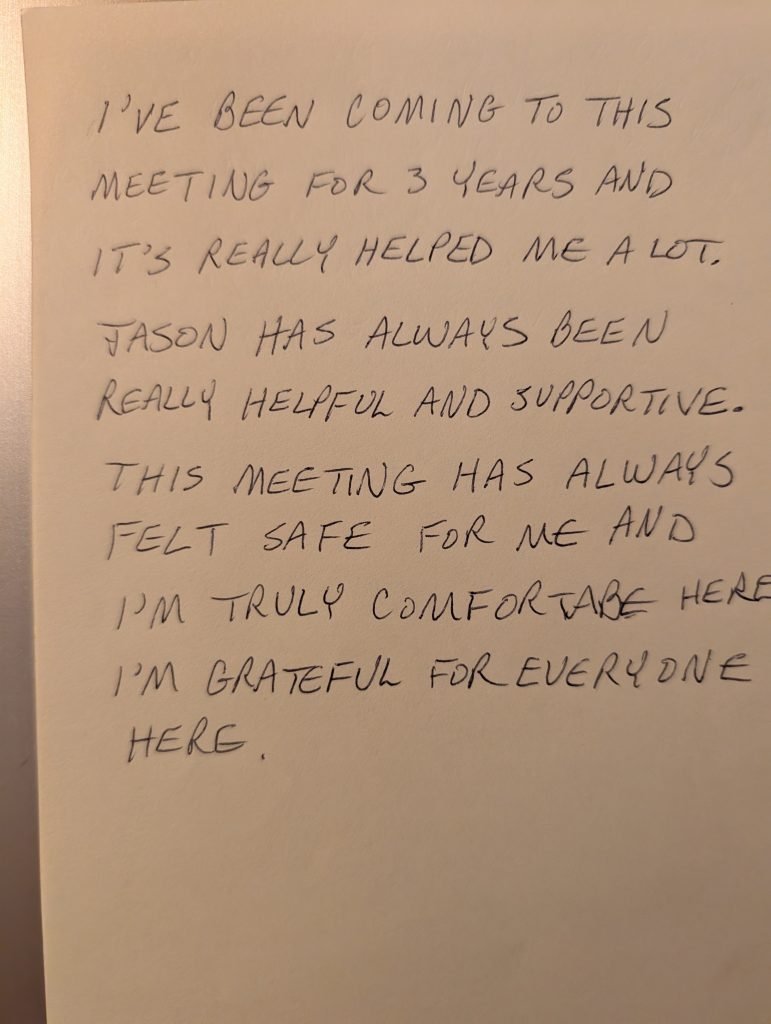 I'VE BEEN COMING TO THIS
MEETING FOR 3 YEARS AND
IT'S REALLY HELPED ME A LOT.
JASON HAS ALWAYS BEEN
REALLY HELPFUL AND SUPPORTIVE.
THIS MEETING HAS ALWAYS
FELT SAFE FOR ME AND
I'M TRULY COMFORTABE HERE
I'M GRATEFUL FOR EVERYONE
HERE.